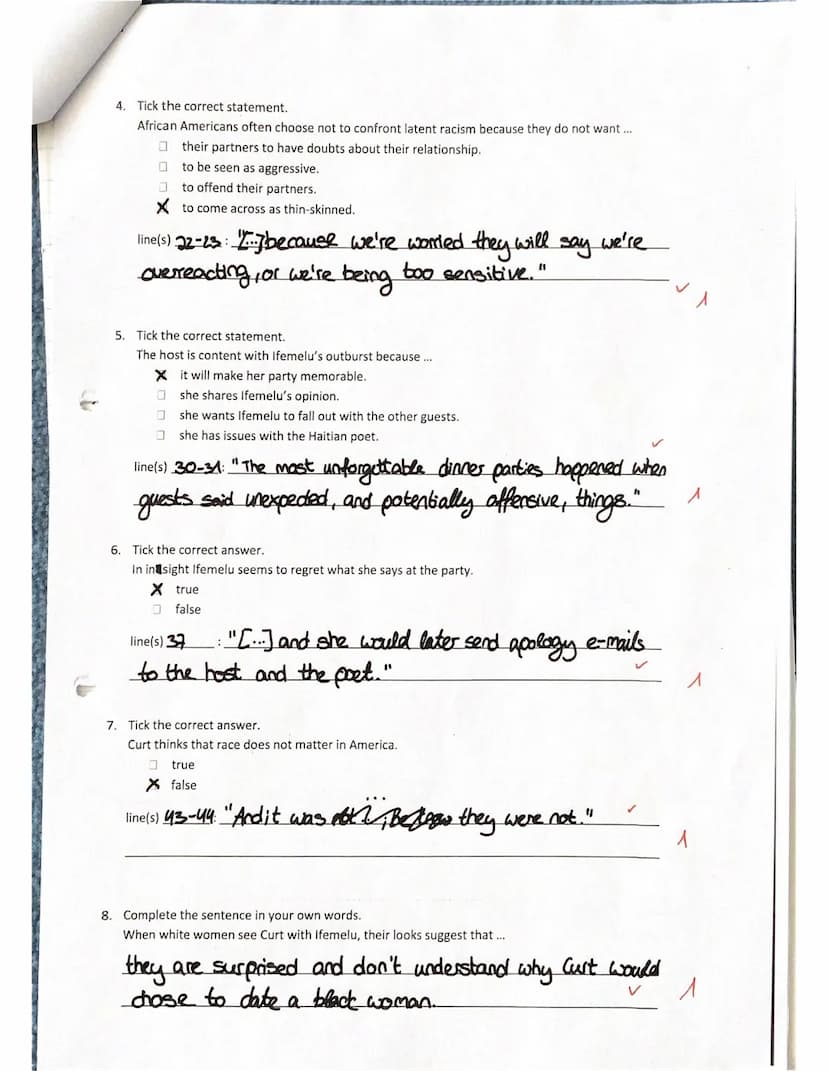 4. Tick the correct statement.
African Americans often choose not to confront latent racism because they do not want ...
☐ their partners to have doubts about their relationship.
☐ to be seen as aggressive.
☐ to offend their partners.
X to come across as thin-skinned.
line(s) 22-23: "[...]because we're worried they will say we're
overreacting, or we're being too sensitive."
✓ 1
5. Tick the correct statement.
The host is content with Ifemelu's outburst because ...
X it will make her party memorable.
☐ she shares Ifemelu's opinion.
☐ she wants Ifemelu to fall out with the other guests.
☐ she has issues with the Haitian poet.
✓
line(s) 30-31: "The most unforgettable dinner parties happened when
guests said unexpected, and potentially offensive, things." 1
6. Tick the correct answer.
In insight Ifemelu seems to regret what she says at the party.
X true
☐ false
line(s) 37 : "[...] and she would later send apology e-mails
to the host and the poet." ✓ 1
7. Tick the correct answer.
Curt thinks that race does not matter in America.
☐ true
X false
...
line(s) 43-44: "And it was they were not." ✓
1
8. Complete the sentence in your own words.
When white women see Curt with Ifemelu, their looks suggest that ...
they are surprised and don't understand why Curt would
chose to date a black woman. ✓ 1